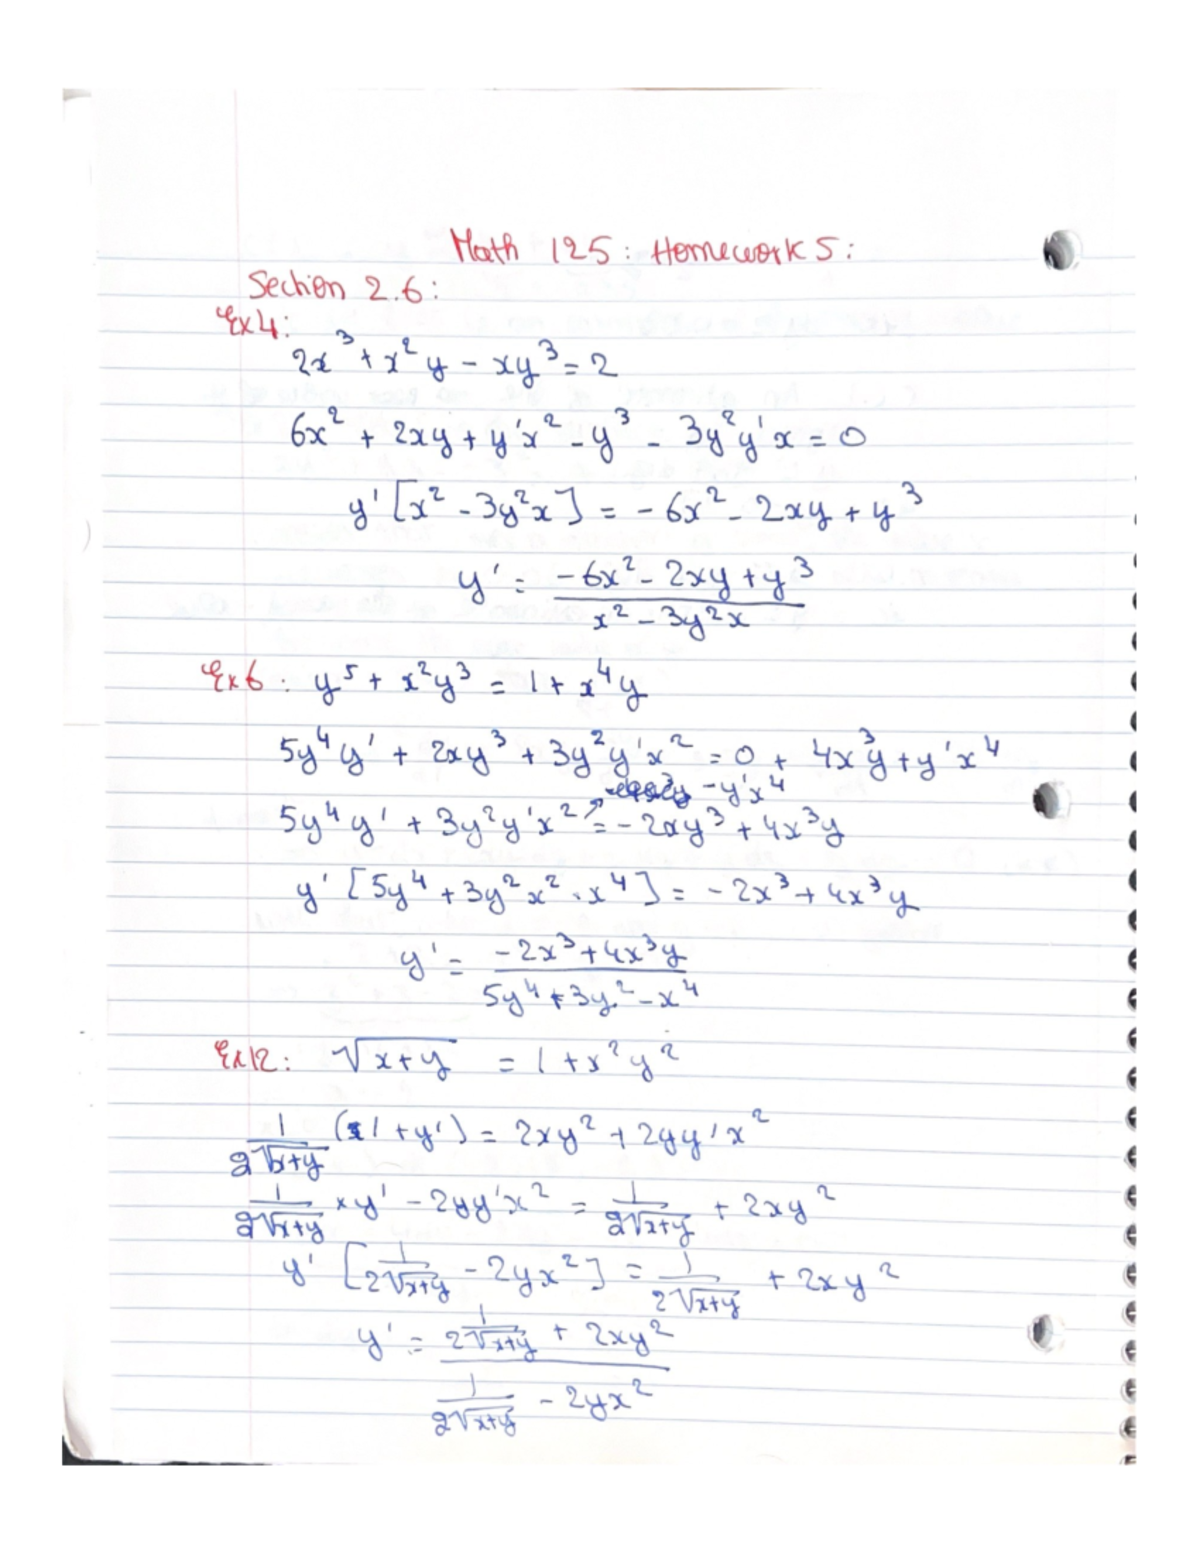 Math 125: Homework 5:
Section 2.6:
Ex4:
2x³ + x²y - xy³ = 2
6x² + 2xy + y'x² - y³ - 3y²y'x = 0
y' [x² - 3y²x] = - 6x² - 2xy + y³
y' = (-6x² - 2xy + y³) / (x² - 3y²x)
Ex6: y⁵ + x²y³ = 1 + x⁴y
5y⁴y' + 2xy³ + 3y²y'x² = 0 + 4x³y + y'x⁴
- y'x⁴
5y⁴y' + 3y²y'x² = - 2xy³ + 4x³y
y' [5y⁴ + 3y²x² - x⁴] = - 2x³ + 4x³y
y' = (-2x³ + 4x³y) / (5y⁴ + 3y² - x⁴)
Ex12: √(x+y) = 1 + x²y²
1/(2√(x+y)) (1 + y') = 2xy² + 2yy'x²
1/(2√(x+y)) × y' - 2yy'x² = 1/(2√(x+y)) + 2xy²
y' [1/(2√(x+y)) - 2yx²] = 1/(2√(x+y)) + 2xy²
y' = (1/(2√(x+y)) + 2xy²) / (1/(2√(x+y)) - 2yx²)